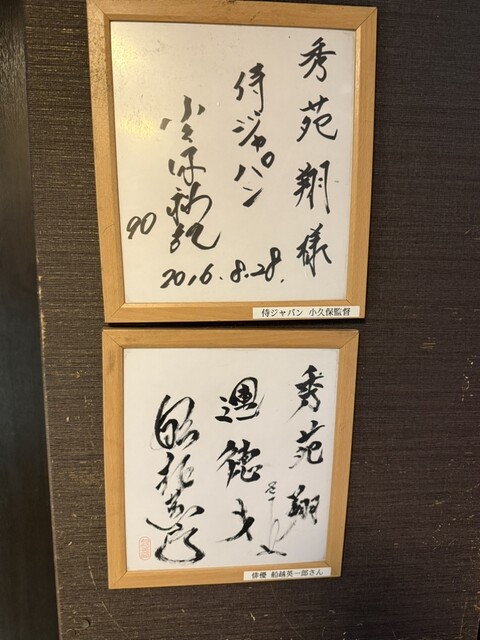 秀苑翔様
侍ジャパン
小久保裕紀
90
2016.8.28.
侍ジャパン 小久保監督
秀苑翔
運徳才
船越英一郎
俳優 船越英一郎さん